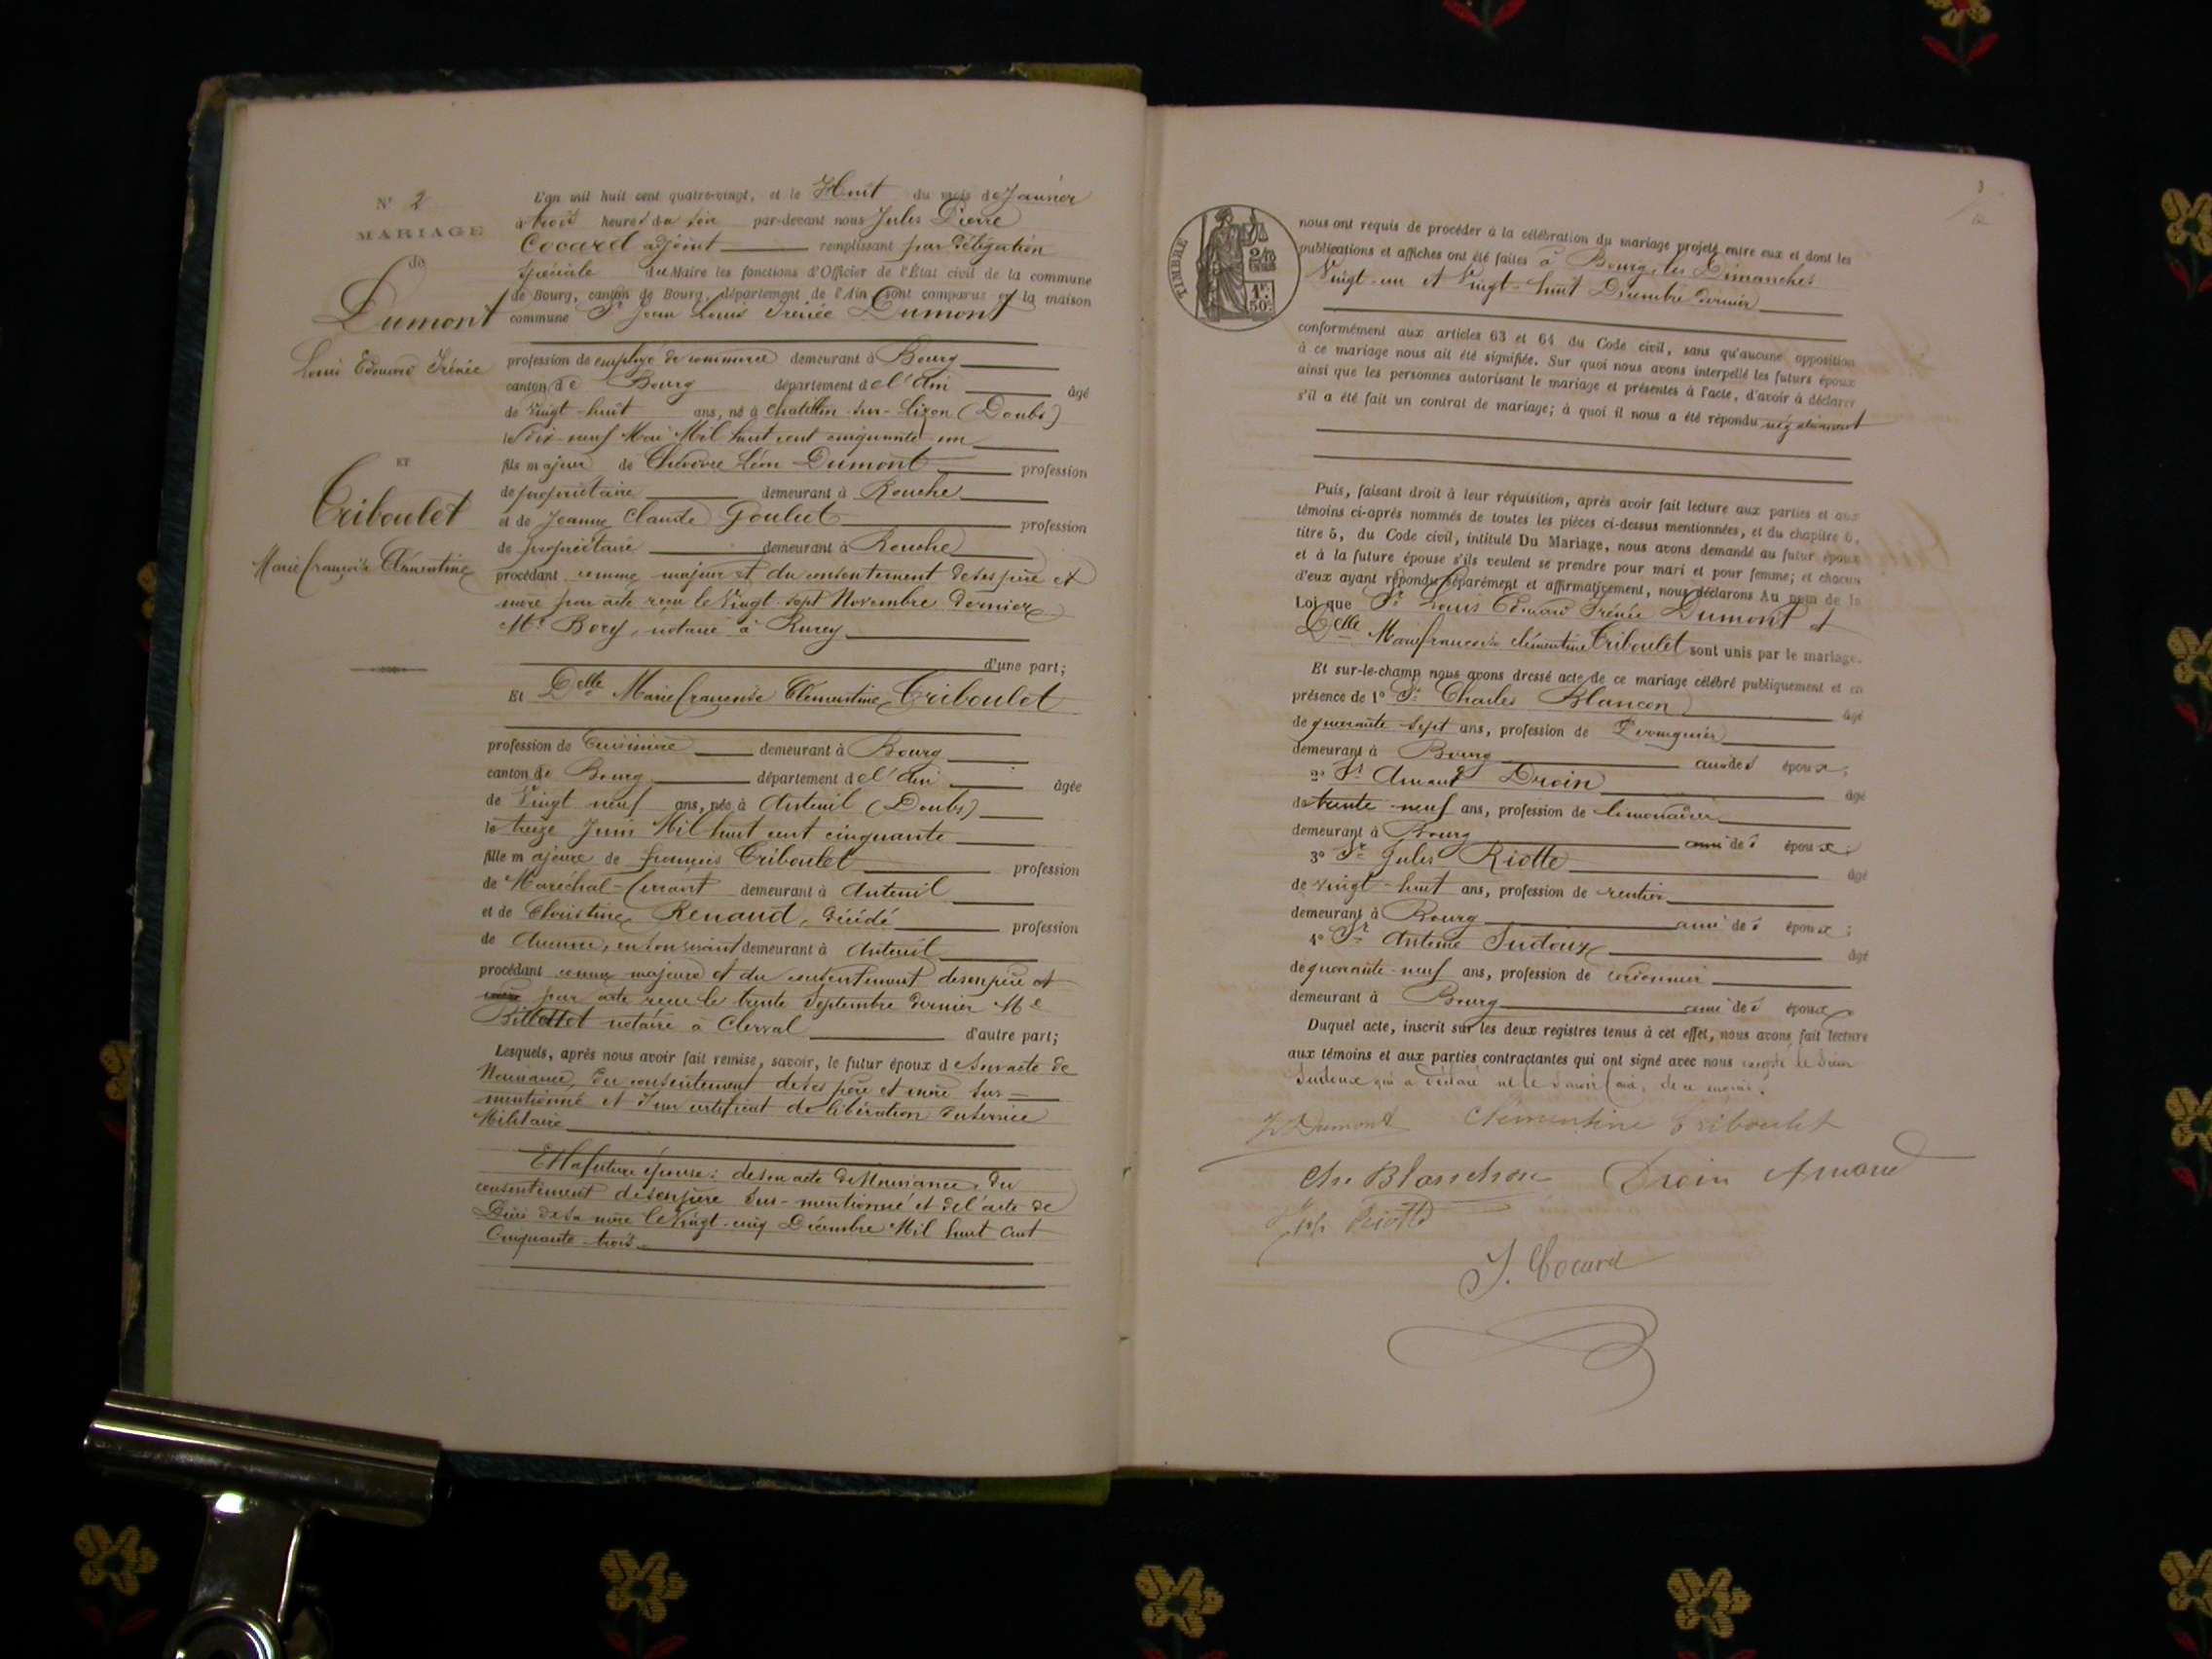 N° 2
MARIAGE
de
Dumont
Louis Edouard Irénée
ET
Triboulet
Marie françoise Clémentine
L'an mil huit cent quatre-vingt, et le Huit du mois de Janvier
à trois heures du soir par-devant nous Jules Pierre
Cocard adjoint remplissant par délégation
spéciale du Maire les fonctions d'Officier de l'État civil de la commune
de Bourg, canton de Bourg, département de l'Ain sont comparus en la maison
commune Sr Jean Louis Irénée Dumont
profession de employé de commerce demeurant à Bourg
canton de Bourg département de l'Ain âgé
de vingt-huit ans, né à Chatillon-sur-Lizon (Doubs)
le dix-neuf Mai Mil huit cent cinquante-un
fils majeur de Léon Dumont profession
de propriétaire demeurant à Rouche
et de Jeanne Claude Goulut profession
de propriétaire demeurant à Rouche
procédant comme majeur et du consentement de ses père et
mère par acte reçu le Vingt-sept Novembre dernier
Me Bory, notaire à Rurey
d'une part;
Et Delle Marie françoise Clémentine Triboulet
profession de Cuisinière demeurant à Bourg
canton de Bourg département de l'Ain âgée
de Vingt neuf ans, née à Anteuil (Doubs)
le treize Juin Mil huit cent cinquante
fille majeure de françois Triboulet profession
de Maréchal-ferrant demeurant à Anteuil
et de Christine Renaud, décédé profession
de Aucune, en son vivant demeurant à Anteuil
procédant comme majeure et du consentement de son père et
mère par acte reçu le trente Septembre dernier Me
notaire à Clerval d'autre part;
Lesquels, après nous avoir fait remise, savoir, le futur époux de son acte de
Naissance, du consentement de ses père et mère sus-
mentionné et d'un certificat de libération du service
Militaire
Et la future épouse: de son acte de Naissance, du
consentement de son père sus-mentionné et de l'acte de
Décès de sa mère le Vingt-cinq Décembre Mil huit cent
Cinquante-trois
3
TIMBRE
2/10
1F.
50c
nous ont requis de procéder à la célébration du mariage projeté entre eux et dont les
publications et affiches ont été faites à Bourg, les Dimanches
Vingt-un et Vingt-huit Décembre dernier
conformément aux articles 63 et 64 du Code civil, sans qu'aucune opposition
à ce mariage nous ait été signifiée. Sur quoi nous avons interpellé les futurs époux
ainsi que les personnes autorisant le mariage et présentes à l'acte, d'avoir à déclarer
s'il a été fait un contrat de mariage; à quoi il nous a été répondu négativement
Puis, faisant droit à leur réquisition, après avoir fait lecture aux parties et aux
témoins ci-après nommés de toutes les pièces ci-dessus mentionnées, et du chapitre 6,
titre 5, du Code civil, intitulé Du Mariage, nous avons demandé au futur époux
et à la future épouse s'ils veulent se prendre pour mari et pour femme; et chacun
d'eux ayant répondu séparément et affirmativement, nous déclarons Au nom de la
Loi que Sr Louis Edouard Irénée Dumont et
Delle Marie françoise clémentine Triboulet sont unis par le mariage.
Et sur-le-champ nous avons dressé acte de ce mariage célébré publiquement et en
présence de 1° Sr Charles Blancon âgé
de quarante-sept ans, profession de
demeurant à Bourg ami des époux;
2° Sr Amand Droin âgé
de trente-neuf ans, profession de limonadier
demeurant à Bourg ami des époux;
3° Sr Jules Riotte âgé
de vingt-huit ans, profession de rentier
demeurant à Bourg ami des époux;
4° Sr Antoine Sudoux âgé
de quarante-neuf ans, profession de cordonnier
demeurant à Bourg ami des époux
Duquel acte, inscrit sur les deux registres tenus à cet effet, nous avons fait lecture
aux témoins et aux parties contractantes qui ont signé avec nous excepté le Sieur
Sudoux qui a déclaré ne le savoir faire, de ce enquis.
Dumont Clémentine Triboulet
Ch. Blanchon Droin Amand
Riotte
J. Cocard